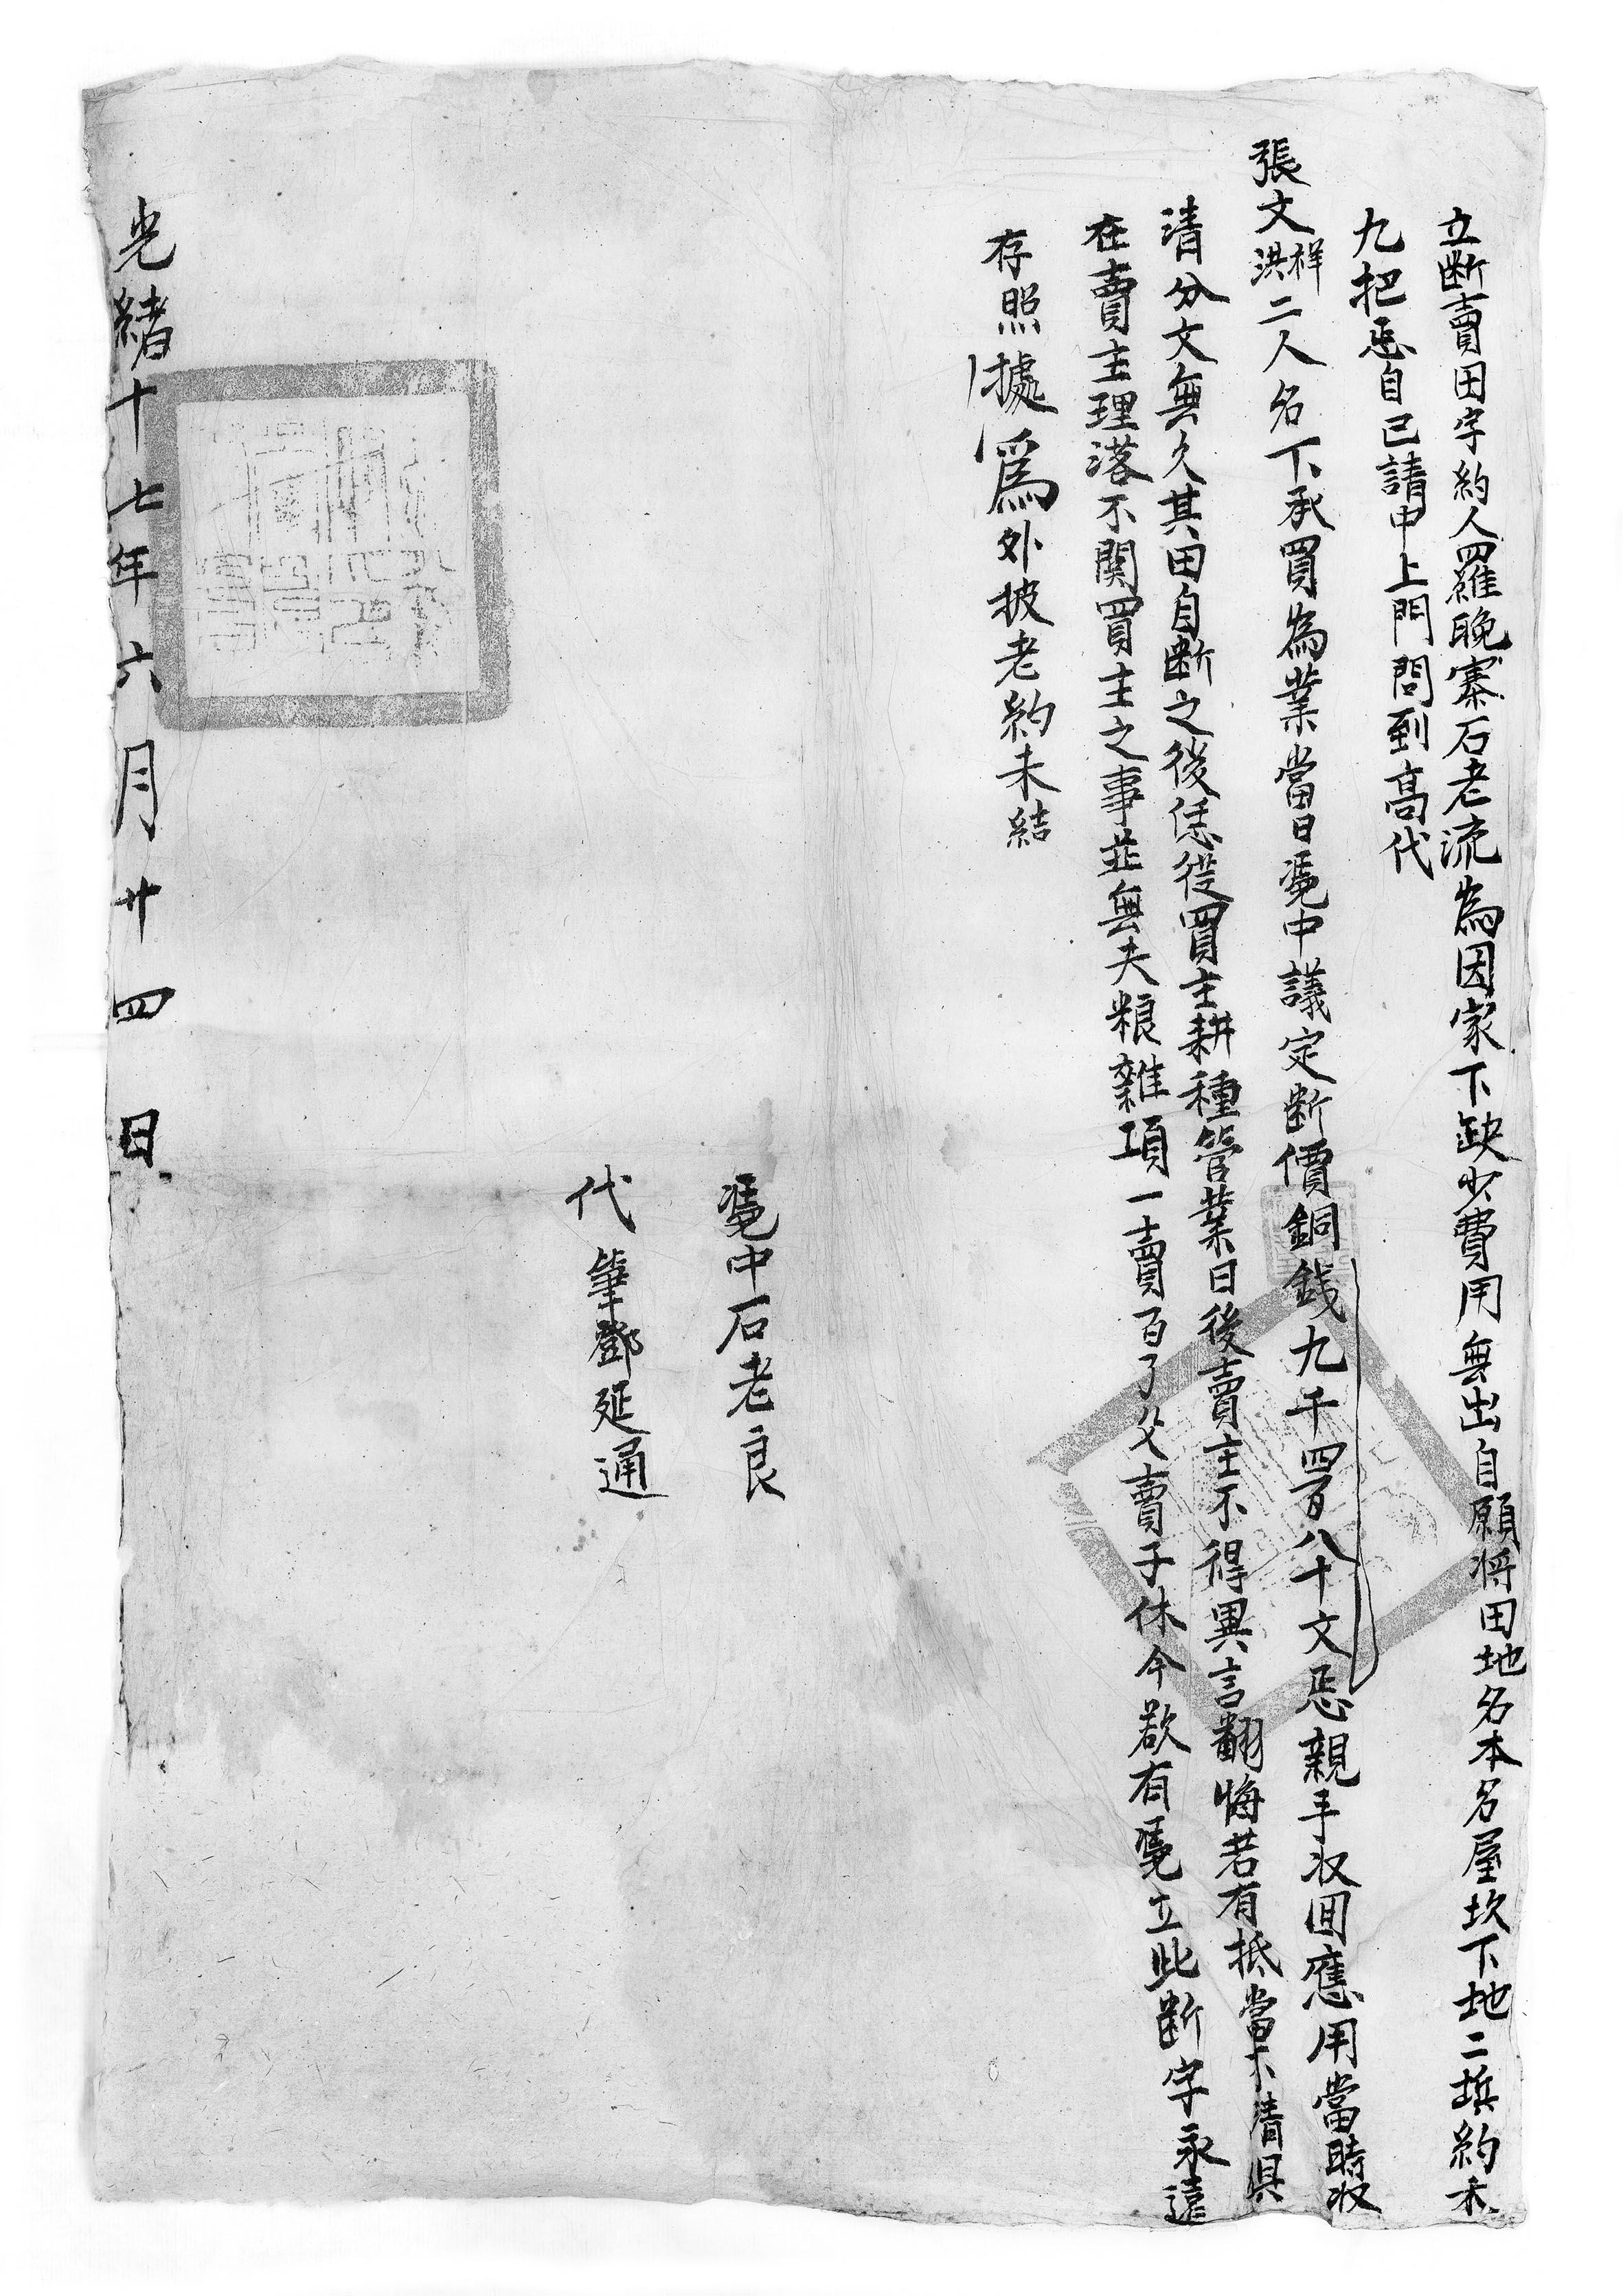 立断賣田字約人羅晚寨石老流為因家下缺少費用無出自願将田地名本名屋坎下地二坵約禾
九把忌自己請中上門問到高代
張文祥洪二人名下承買為業當日憑中議定断價銅銭九千四百八十文忌親手収囬應用當時収
清分文無欠其田自断之後恁從買主耕種管業日後賣主不得異言翻悔若有抵當不清俱
在賣主理落不関買主之事並無夫粮雜項一賣百了父賣子休今欲有憑立此断字永遠
存照據為外披老約未結
憑中石老良
代筆鄧延通
光緒十七年六月廿四日